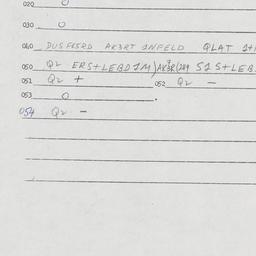 020 0
030 0
040 DUSFKSRD AK3RT INFELD QLAT 2+1
050 Q2 ERS+LEBD 1M) S1S+LEB
051 Q2 + 052 Q2 -
053 0 .
054 Q2 -